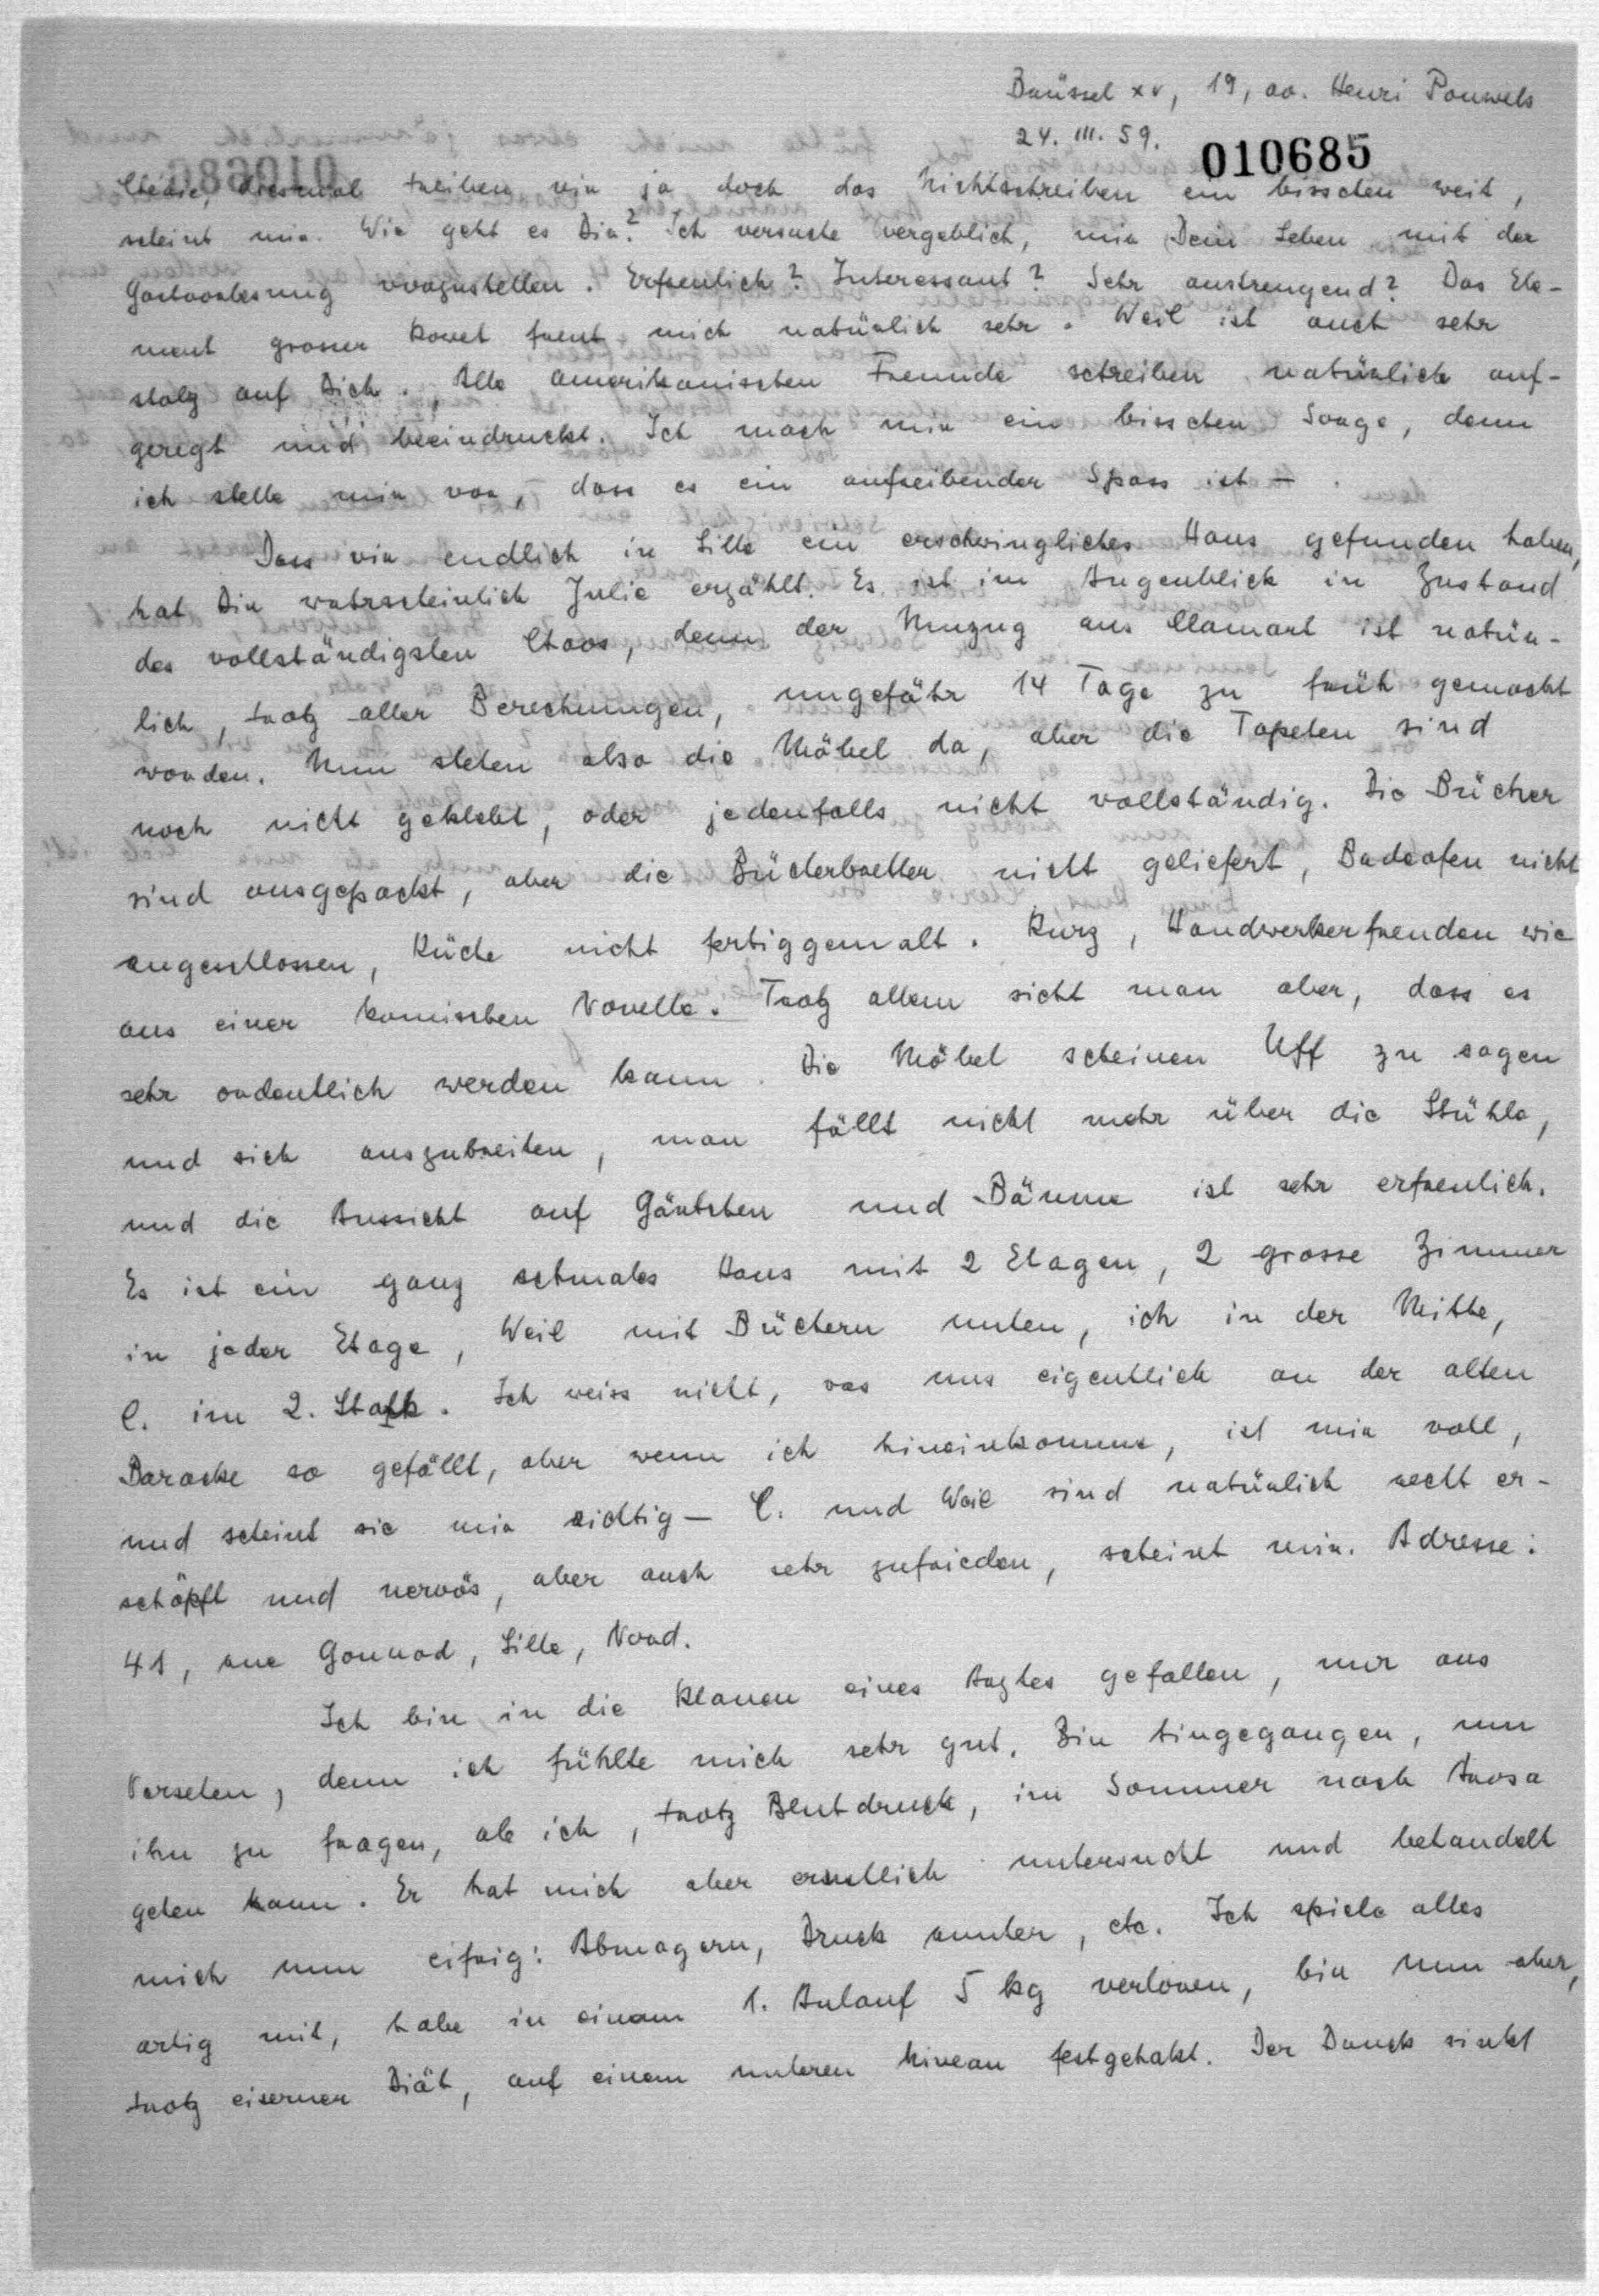 Brüssel XV, 19, av. Henri Pauwels
24. III. 59.
010685
Chérie, diesmal treiben wir ja doch das Nichtschreiben ein bisschen weit,
scheint mir. Wie geht es Dir? Ich versuche vergeblich, mir Dein Leben mit der
Gastvorlesung vorzustellen. Erfreulich? Interessant? Sehr anstrengend? Das Ele-
ment grosser freut mich natürlich sehr. Weil ist auch sehr
stolz auf Dich. Alle amerikanischen Freunde schreiben natürlich auf-
geregt und beeindruckt. Ich mach mir ein bisschen Sorge, denn
ich stelle mir vor, dass es ein aufreibender Spass ist –.
Dass wir endlich in Lille ein erschwingliches Haus gefunden haben,
hat Dir wahrscheinlich Julie erzählt. Es ist im Augenblick in Zustand
des vollständigsten Chaos, denn der Umzug aus Clamart ist natür-
lich, trotz aller Berechnungen, ungefähr 14 Tage zu früh gemacht
worden. Nun stehen also die Möbel da, aber die Tapeten sind
noch nicht geklebt, oder jedenfalls nicht vollständig. Die Bücher
sind ausgepackt, aber die Bücherbretter nicht geliefert, Badeofen nicht
angeschlossen, Küche nicht fertiggemalt. Kurz, Handwerkerfreuden wie
aus einer komischen Novelle. Trotz allem sieht man aber, dass es
sehr ordentlich werden kann. Die Möbel scheinen Uff zu sagen
und sich auszubreiten, man fällt nicht mehr über die Stühle,
und die Aussicht auf Gärtchen und Bäume ist sehr erfreulich.
Es ist ein ganz schmales Haus mit 2 Etagen, 2 grosse Zimmer
in jeder Etage, Weil mit Büchern unten, ich in der Mitte,
C. im 2. Stock. Ich weiss nicht, was uns eigentlich an der alten
Baracke so gefällt, aber wenn ich hineinkomme, ist mir wohl,
und scheint sie mir richtig – C. und Weil sind natürlich recht er-
schöpft und nervös, aber auch sehr zufrieden, scheint mir. Adresse:
41, rue Gounod, Lille, Nord.
Ich bin in die Klauen eines Arztes gefallen, nur aus
Versehen, denn ich fühlte mich sehr gut. Bin hingegangen, um
ihn zu fragen, ob ich, trotz Blutdruck, im Sommer nach Arosa
gehen kann. Er hat mich aber ernstlich untersucht und behandelt
mich nun eifrig: Abmagern, Druck runter, etc. Ich spiele alles
artig mit, habe in einem 1. Anlauf 5 kg verloren, bin nun aber,
trotz eiserner Diät, auf einem unteren Niveau festgehakt. Der Druck sinkt